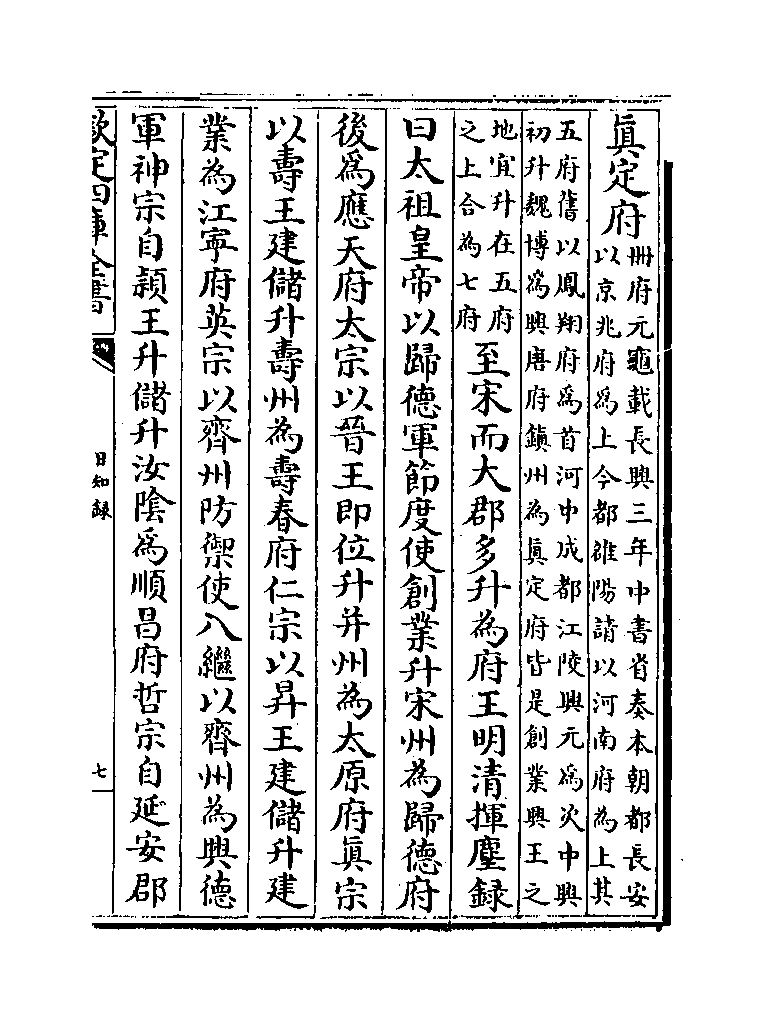 眞定府
冊府元龜載長興三年中書省奏本朝都長安
以京兆府爲上今都雒陽請以河南府為上其
五府舊以鳳翔府爲首河中成都江陵興元爲次中興
初升魏博爲興唐府鎮州為眞定府皆是創業興王之
地宜升在五府
之上合為七府
至宋而大郡多升為府王明清揮麈録
曰太祖皇帝以歸德軍節度使創業升宋州為歸德府
後爲應天府太宗以晉王即位升并州為太原府眞宗
以壽王建儲升壽州為壽春府仁宗以昇王建儲升建
業為江寧府英宗以齊州防禦使入繼以齊州為興德
軍神宗自潁王升儲升汝陰爲順昌府哲宗自延安郡
欽定四庫全書
日知録
七